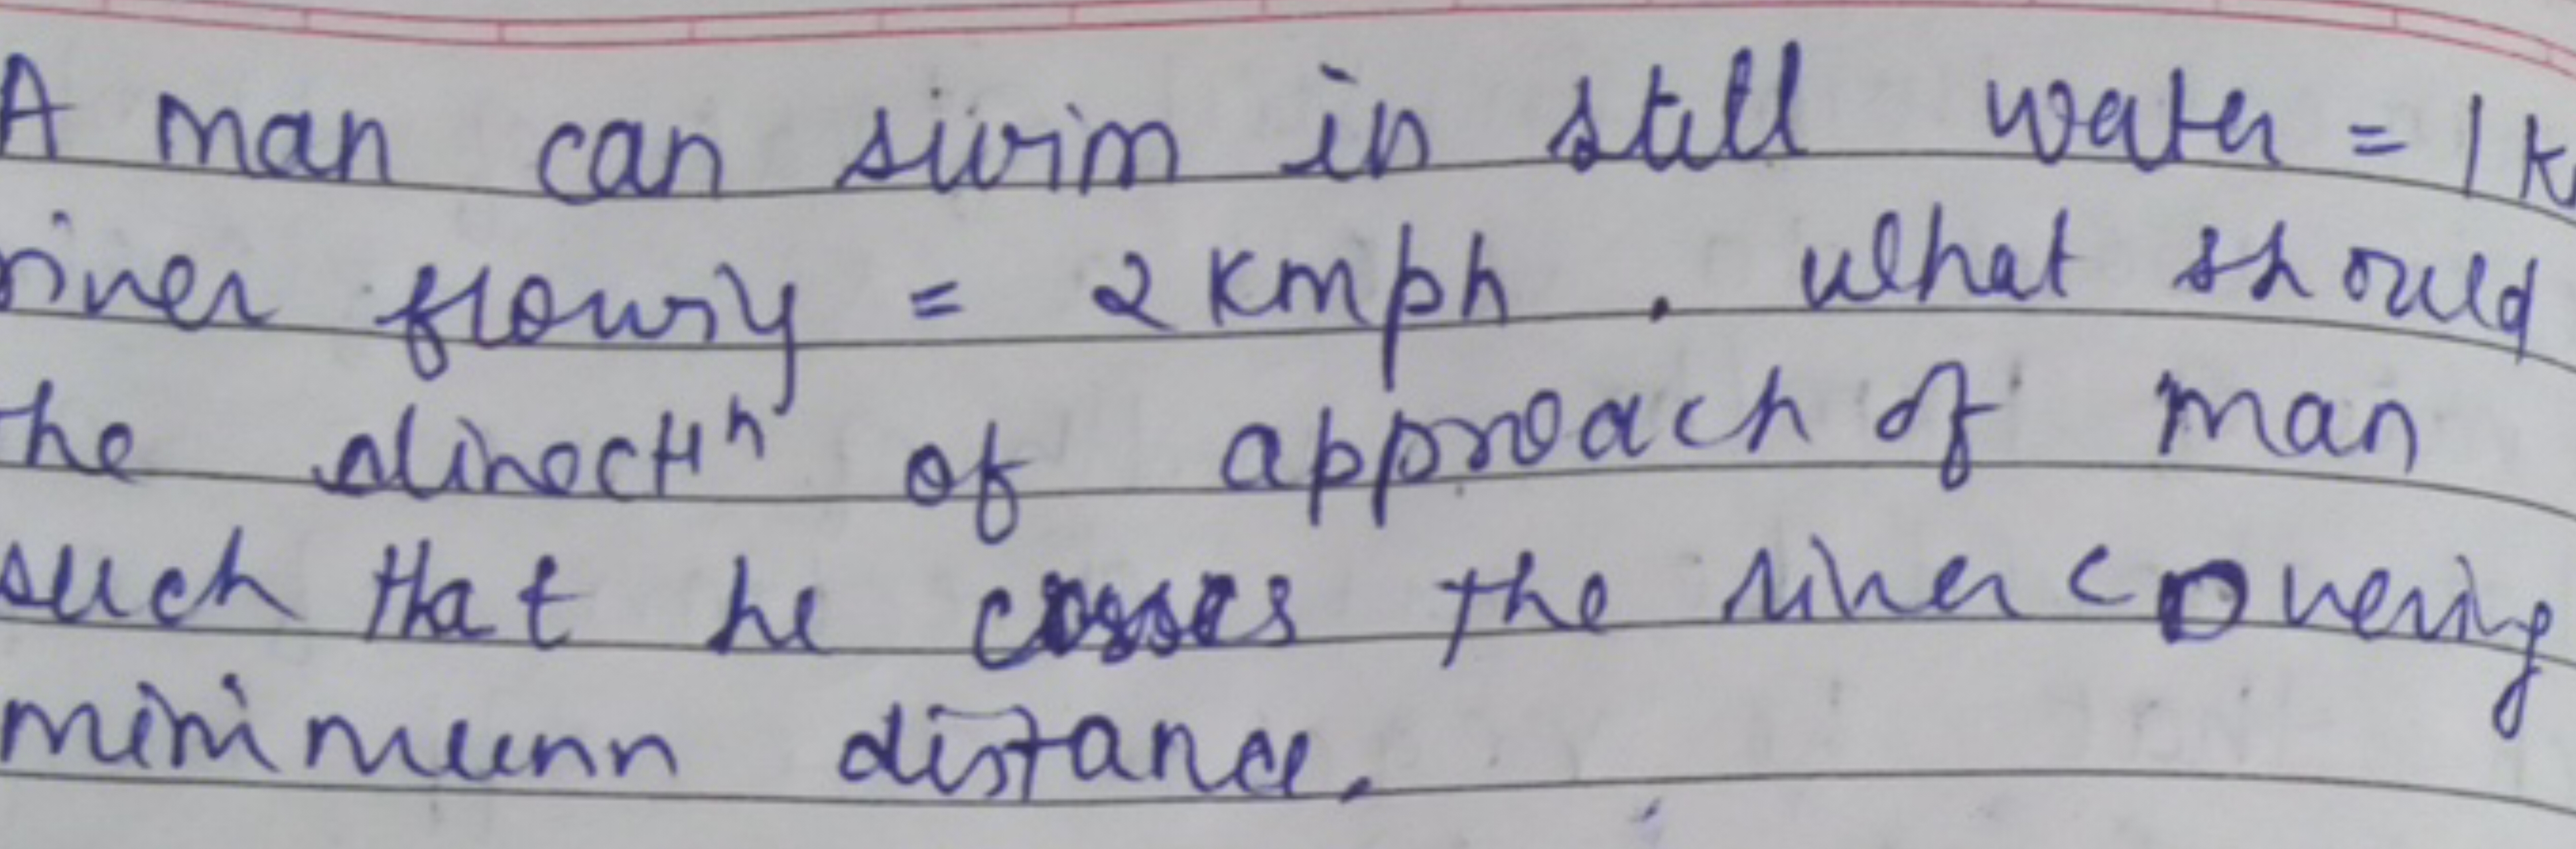 A man can swim in still water = 1 k
river flowing = 2 kmph . What should
the directn of approach of man
such that he crosses the river covering
minimum distance.